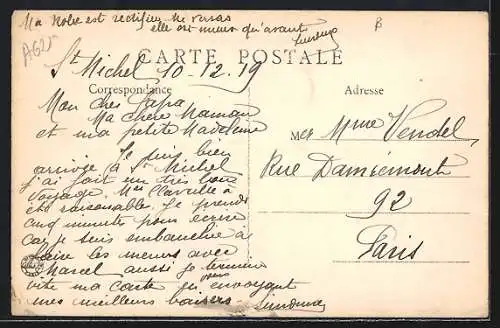 Ma Notre est rectifiée ne versas
elle est mieux qu'avant
CARTE POSTALE
St Michel 10-12-19
Correspondance
Adresse
Mon cher Papa
Ma chère Maman
et ma petite Madeleine
Je suis bien
arrivée à St Michel
j'ai fait un très bon
voyage. Mme Claville a
été raisonable. Je prends
cinq minutes pour écrire
car je suis embauchée à
faire les menus avec
Marcel aussi je termine
vite ma carte en vous envoyant
mes meilleurs baisers Simonne
Mer Mme Vendel
Rue Damrémont
92
Paris